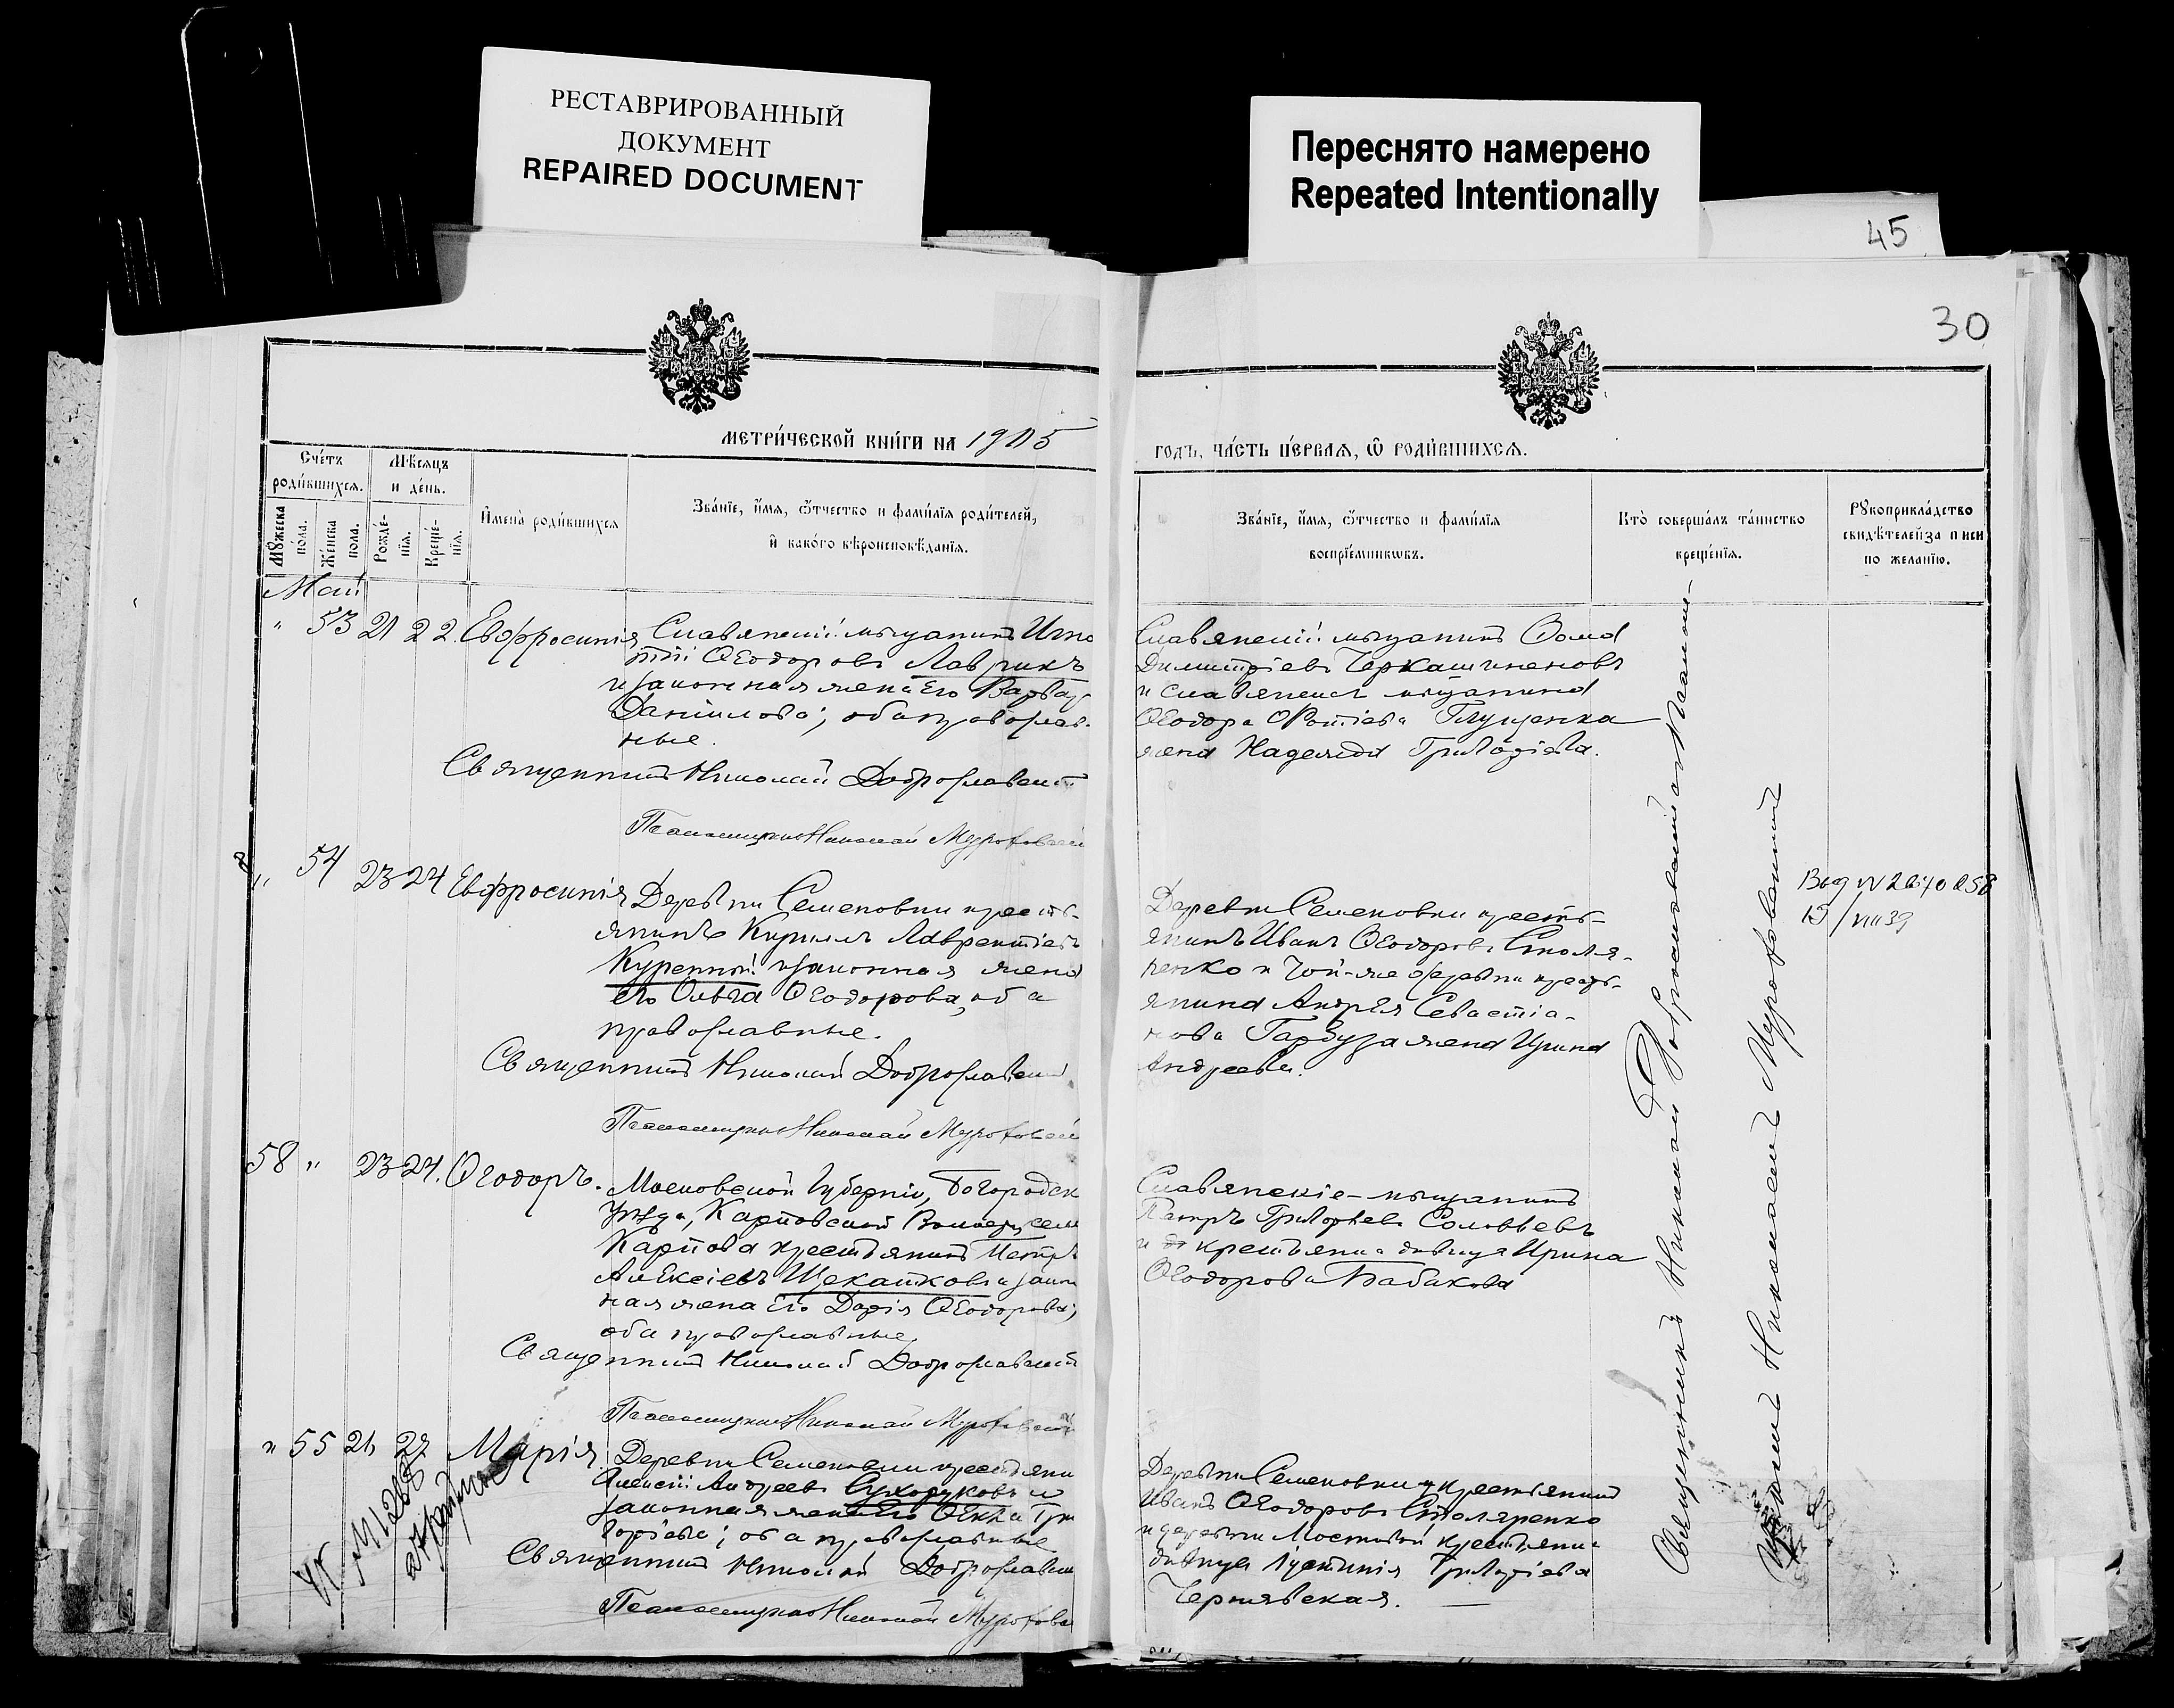 РЕСТАВРИРОВАННЫЙ
ДОКУМЕНТ
REPAIRED DOCUMENT
Переснято намерено
Repeated Intentionally
45
30
МЕТРИ́ЧЕСКОЙ КНИ́ГИ НА 1905
ГОДЪ, ЧА́СТЬ ПЕ́РВАЯ, Ѽ РОДИ́ВШИХСЯ.
Сче́тъ
роди́вшихся.
Мѣсяцъ
и де́нь.
Мꙋжеска
по́ла.
Же́нска
пола.
Рожде́-
нїя.
Креще́-
нїя.
И҆мена̀ роди́вшихся
Зва́нїе, и҆́мя, ѻ҆́тчество и фами́лїя роди́телей,
и҆ како́гѡ вѣроисповѣ́данїя.
Зва́нїе, и҆́мя, ѻ҆́тчество и фами́лїя
воспрїе́мниковъ.
Кто̀ соверша́лъ та́инство
креще́нїя.
Рꙋкоприкла́дство
свидѣ́телей за п иси
по жела́нїю.
Май
" 53 21 22. Евфросинія
Славянскій мѣщанинъ Игна
тій Ѳеодоровъ Лаврикъ
и законная жена его Варвар
Даніилова; оба православ-
ные.
Священникъ Николай Доброславскій
Псаломщикъ Николай
Славянскій мѣщанинъ Ѳома
Димитріевъ
и славянскаго мѣщанина
Ѳеодора Глущенка
жена Надежда Григоріева.
" 54 23 24 Евфросинія
Деревни Семеновки кресть-
янинъ Кириллъ Лаврентіевъ
Куренной и законная жена
его Ольга Ѳеодорова, оба
православные.
Священникъ Николай Доброславскій
Псаломщикъ Николай
Деревни Семеновки кресть-
янинъ Иванъ Ѳеодоровъ Столя-
ренко и той-же деревни кресть-
янина Андрея Севастіа-
нова Гарбуза жена Ирина
Андреева.
58 " 23 24. Ѳеодоръ.
Московской Губерніи, Богородск
Уѣзда, Карповской Волости, села
Карпова крестьянинъ Петръ
Алексіевъ Щекатковъ и закон
ная жена его Дарія Ѳеодорова;
оба православные.
Священникъ Николай Доброславскій
Псаломщикъ Николай
Славянскіе - мѣщанинъ
Петръ Григорьевъ Соловьевъ
и крестьянка дѣвица Ирина
Ѳеодорова Бабакова
" 55 21 22 Марія
Деревни Семеновки крестьянин
Алексій Андреевъ Сухоруковъ и
законная жена его Ѳекла Гри
горіева; оба православные
Священникъ Николай Доброслав
Псаломщикъ Николай
Деревни Семеновки крестьянинъ
Иванъ Ѳеодоровъ Столяренко
и деревни Мостовой крестьянка
дѣвица Іустинія Григоріева
Чернявская.
Священникъ Николай Доброславскій
Николай